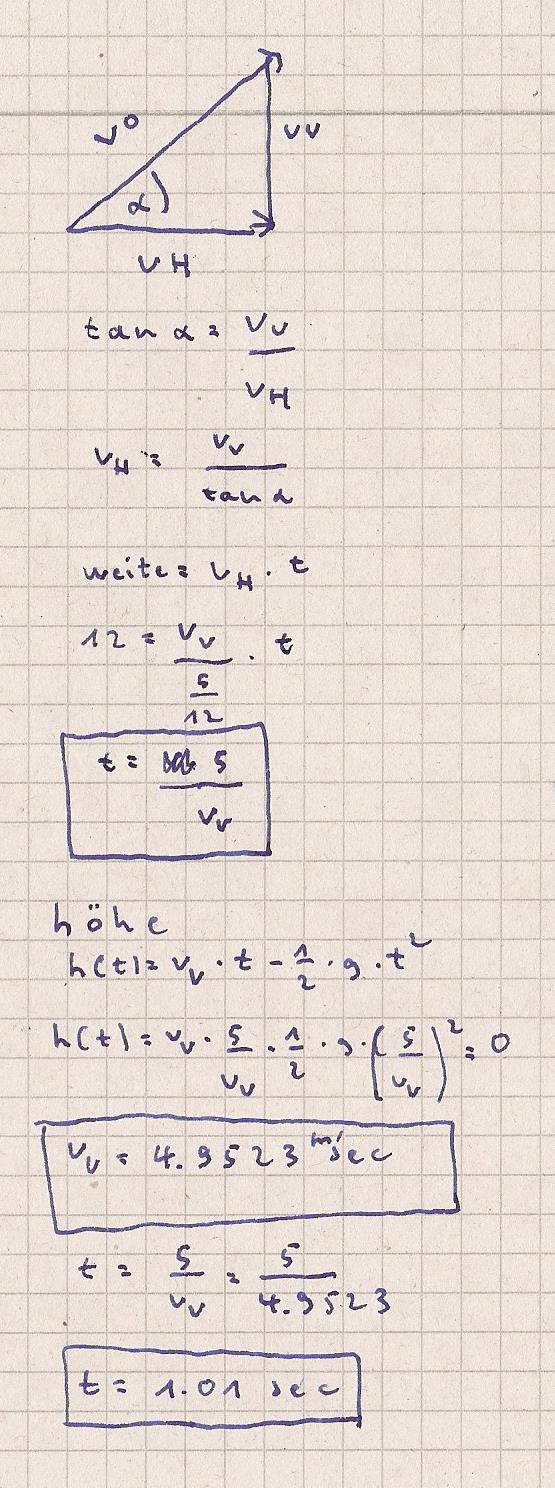 v0
vv
α
vH
tan α = Vv / VH
vH = Vv / tan α
weite = vH · t
12 = Vv / (5/12) · t
t = 5 / Vv
höhe
h(t) = Vv · t - 1/2 · g · t²
h(t) = Vv · 5/Vv · 1/2 · g · (5/Vv)² = 0
Vv = 4.9523 m/sec
t = 5/Vv = 5/4.9523
t = 1.01 sec